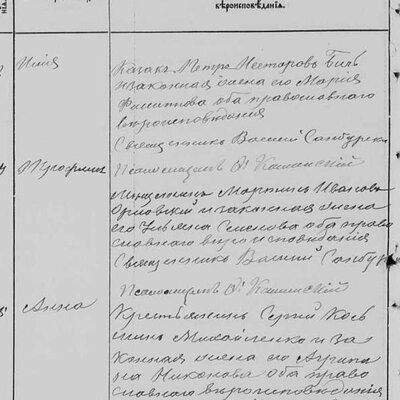 нія.
вѣроисповѣданія.
Юлія
Казакъ Петръ Нестеровъ
и законная жена его Марія
Филиппова оба православнаго
вѣроисповѣданія
Священникъ Василій
Трофимъ
Псаломщикъ
Мѣщанинъ Мартинъ Ивановъ
Орловскій и законная жена
его Ульяна Семенова оба право
славнаго вѣроисповѣданія
Священникъ Василій
Псаломщикъ
Анна
Крестьянинъ Сергій Кось
минъ Михайленко и за
конная жена его Агрипи
на Никонова оба право
славнаго вѣроисповѣданія